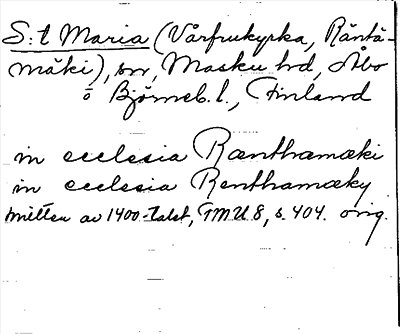 S:t Maria (Vårfrukyrka, Räntä-
mäki), sn, Masku hd, Åbo
o Björneb. l., Finland
in ecclesia Rænthamæki
in ecclesia Renthamæky
mitten av 1400-talet, FMU 8, s. 404. orig.